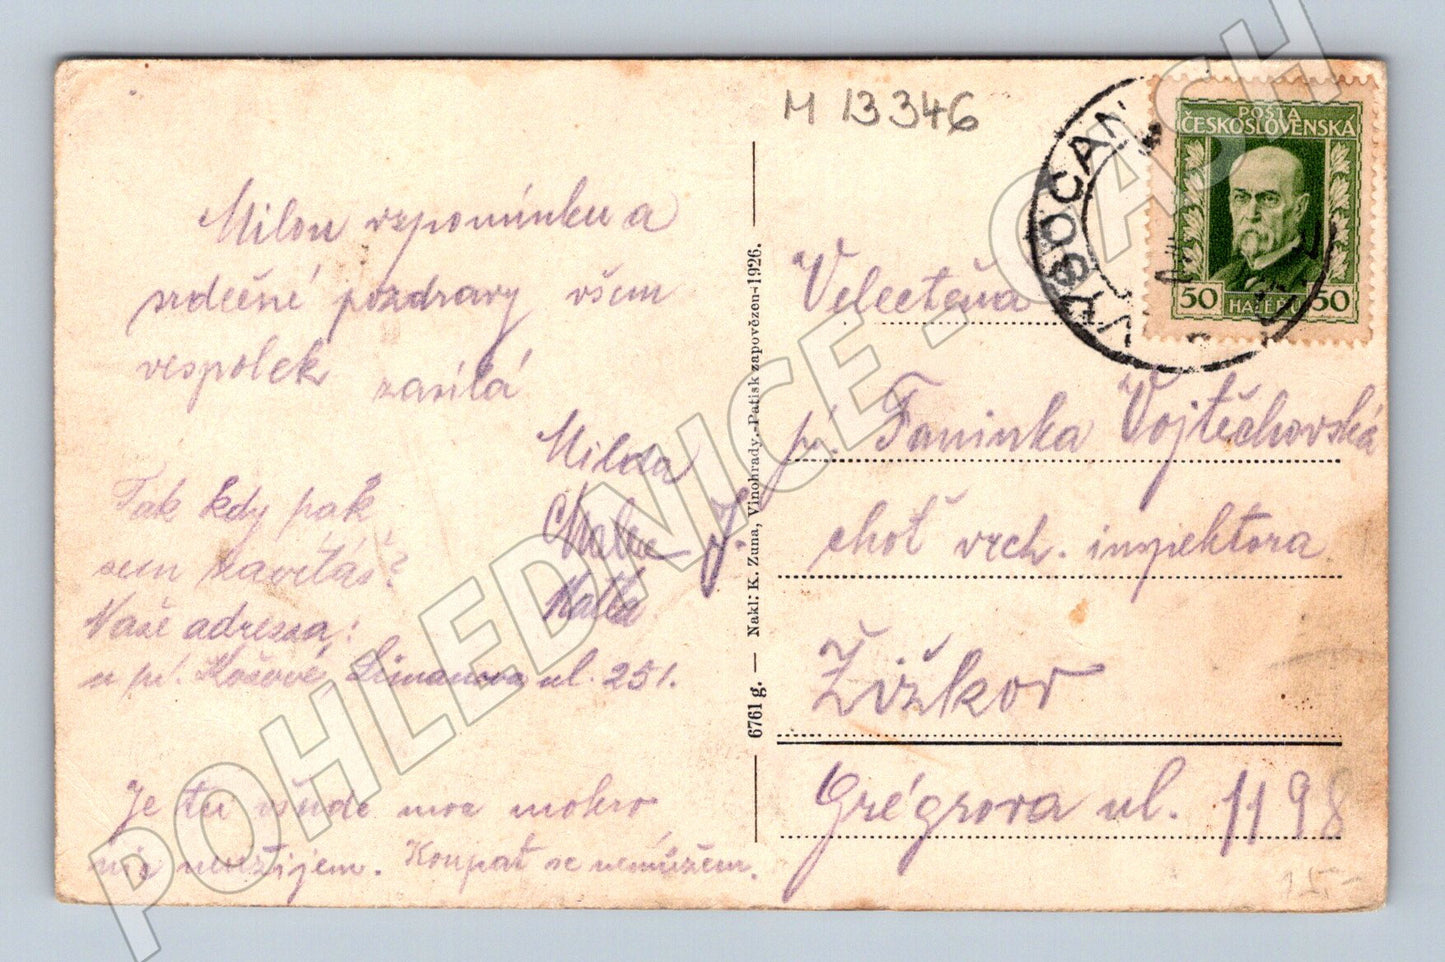 M 13346
Milou vzpomínku a
srdečné pozdravy všem
vespolek zasílá
Milosa
J.
Tak kdy pak
sem zavítáš?
Naše adressa:
u pí. Košové Limanova ul. 251.
Je tu všude moc mokro
nic neužijem. Koupat se nemůžem.
6761 g. — Nakl: K. Zuna, Vinohrady.-Patisk zapovězen-1926.
VYSOČANY
POŠTA
ČESKOSLOVENSKÁ
50 HALÉŘŮ 50
Velectěná
pí. Faninka Vojtěchovská
choť vrch. inspektora
Žižkov
Grégrova ul. 1198
15-
POHLEDNICE - CASH